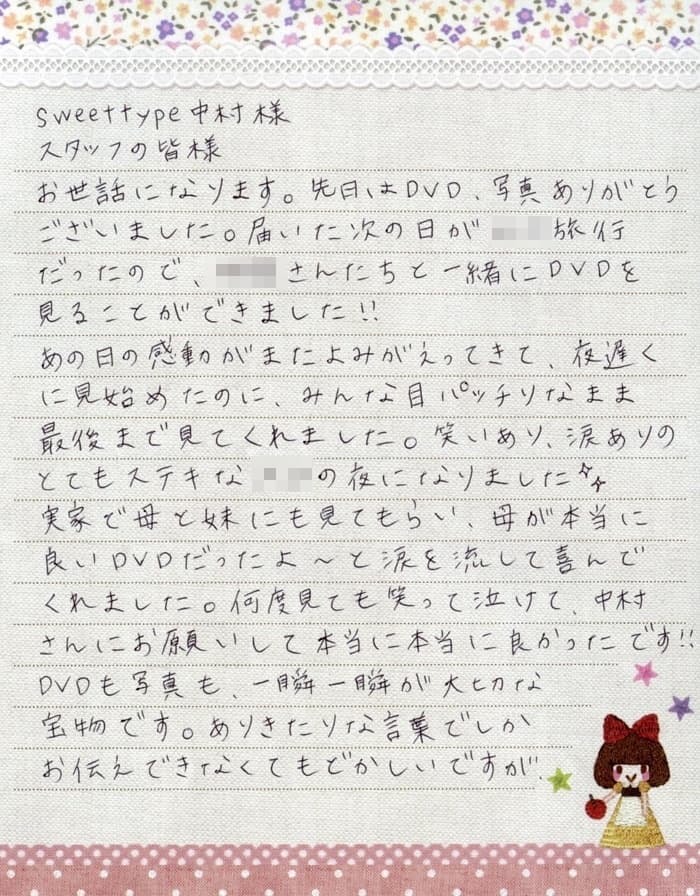 sweettype中村様
スタッフの皆様
お世話になります。先日はDVD、写真ありがとう
ございました。届いた次の日が 旅行
だったので、 さんたちと一緒にDVDを
見ることができました!!
あの日の感動がまたよみがえってきて、夜遅く
に見始めたのに、みんな目パッチリなまま
最後まで見てくれました。笑いあり、涙ありの
とてもステキな の夜になりました
実家で母と妹にも見てもらい、母が本当に
良いDVDだったよ〜と涙を流して喜んで
くれました。何度見ても笑って泣けて、中村
さんにお願いして本当に本当に良かったです!!
DVDも写真も、一瞬一瞬が大切な
宝物です。ありきたりな言葉でしか
お伝えできなくてもどかしいですが、